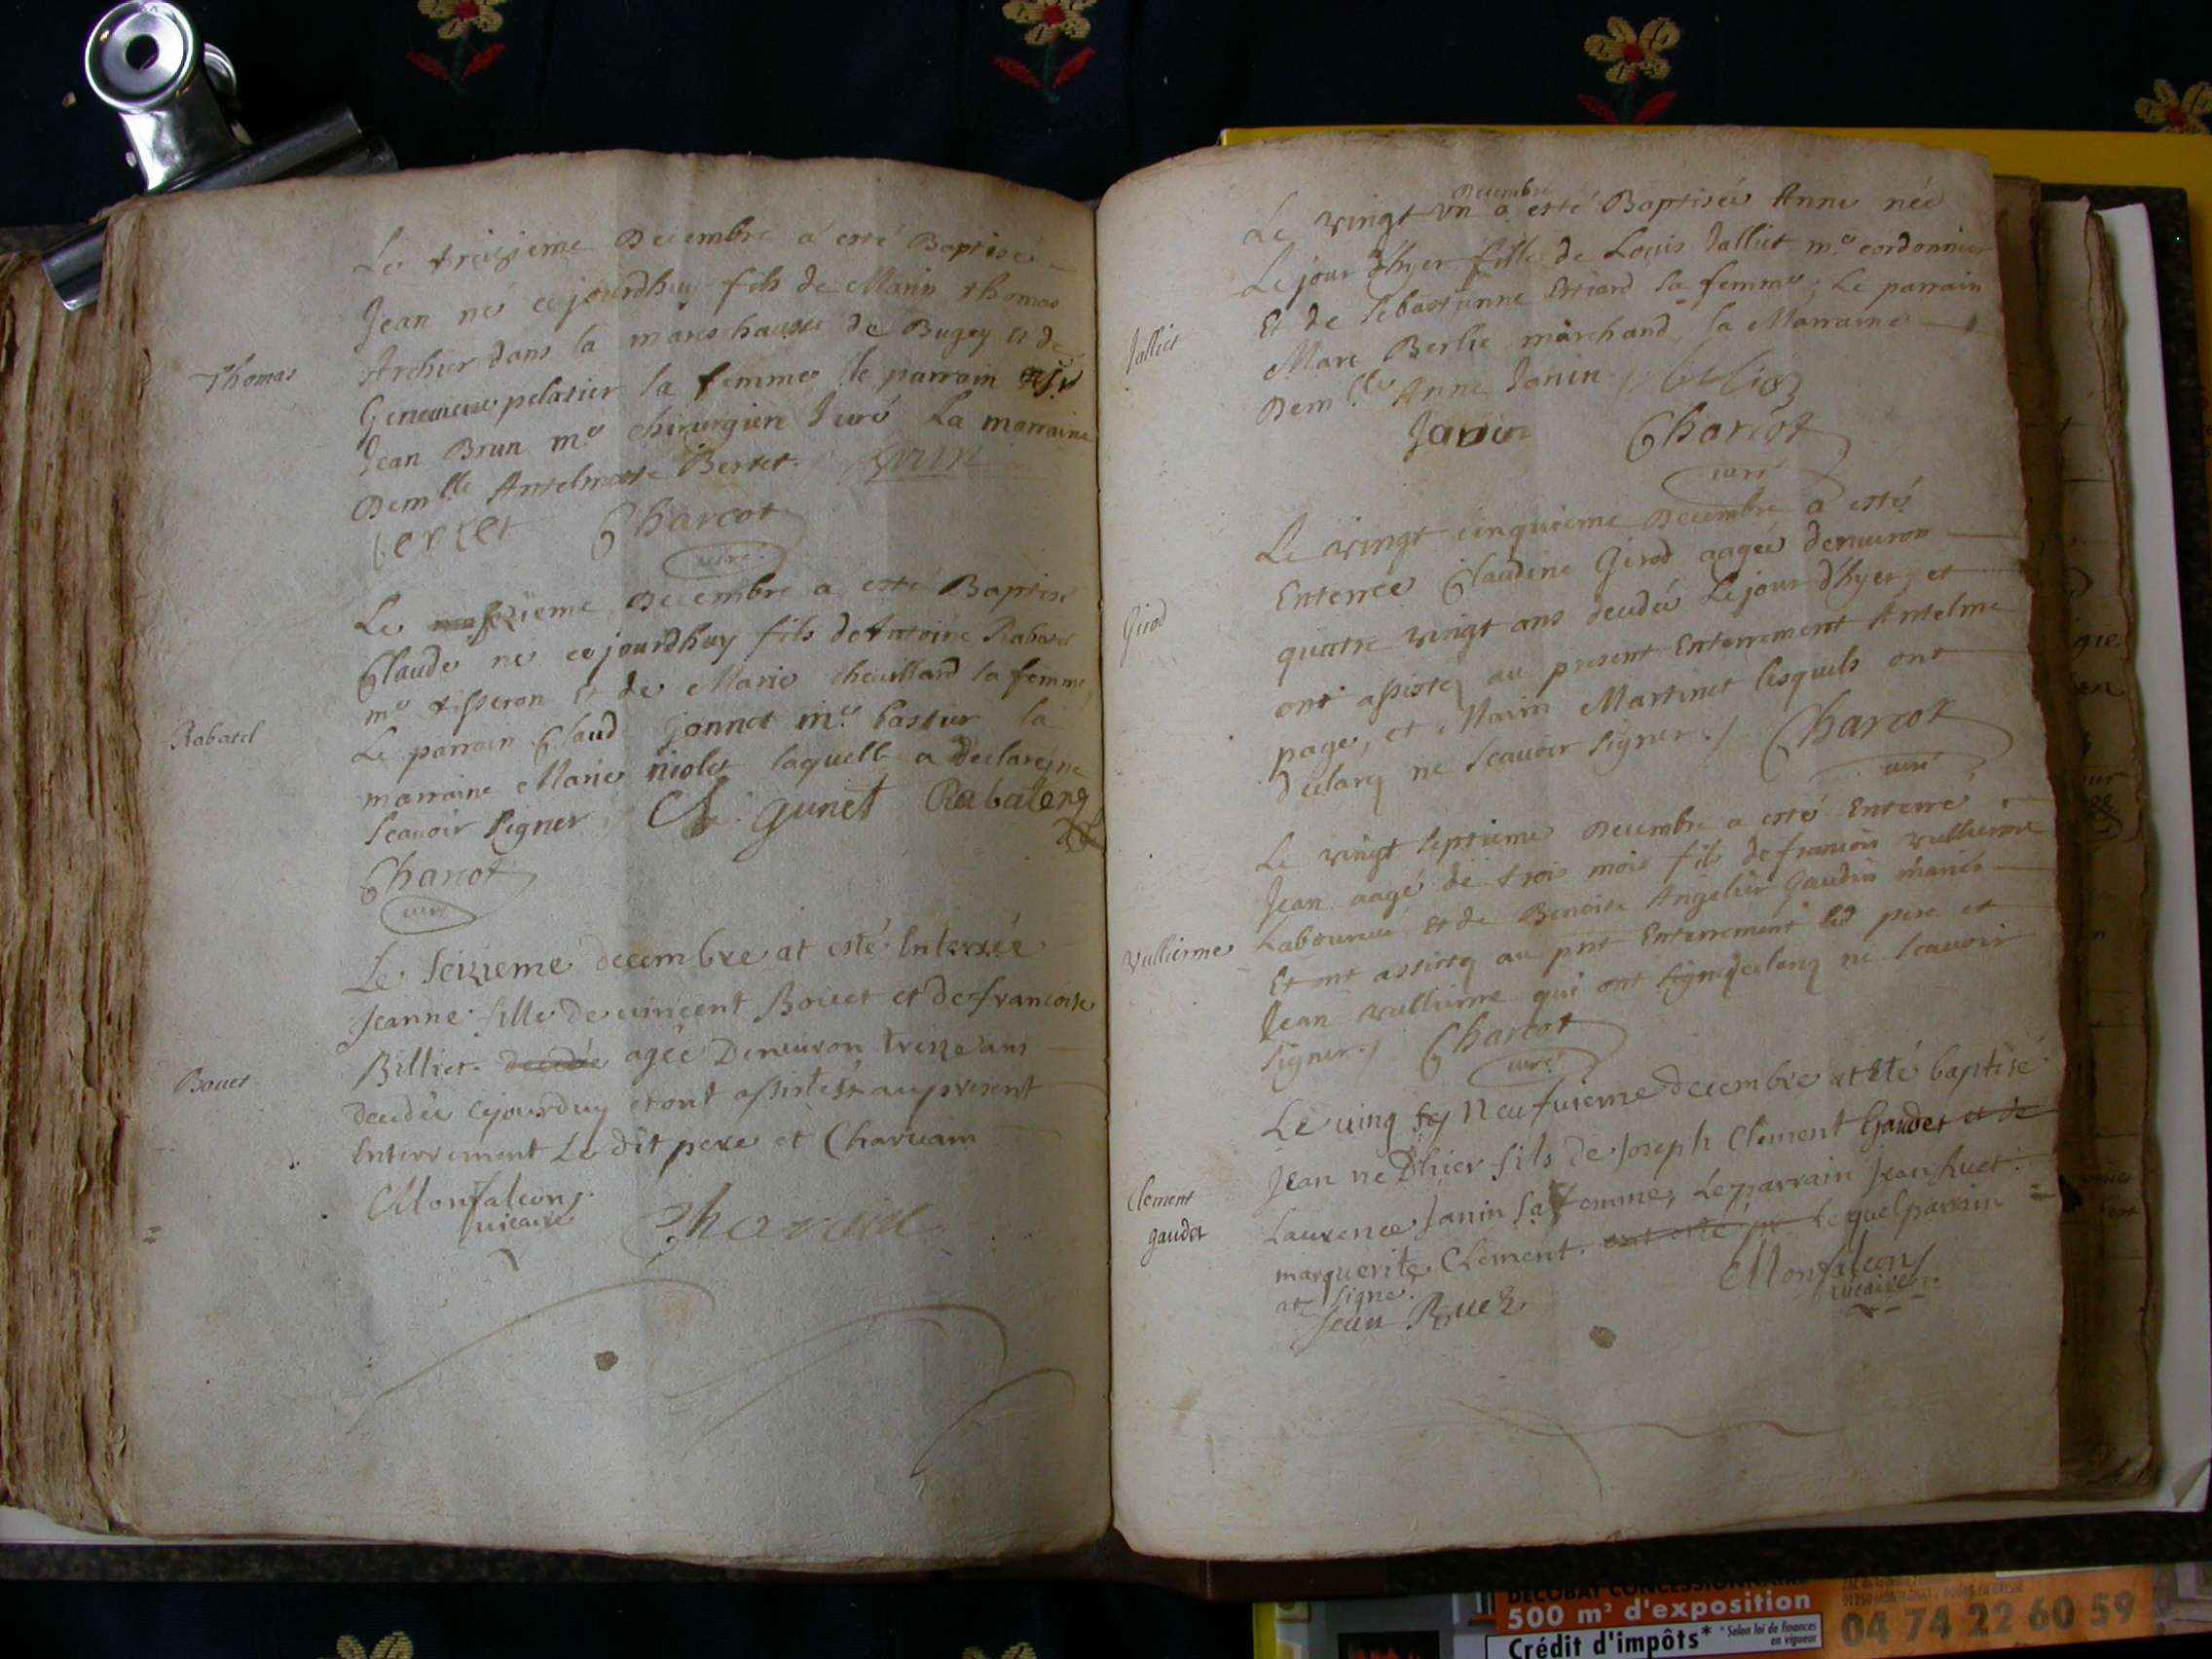 Le treizieme Decembre a esté Baptisé
Jean né cejourdhuy fils de Marin Thomas
Thomas
Archier dans la mareshaussé de Bugey et de
Geneuieue pelatier sa femme le parrain
Jean Brun me chirurgien Juré La marraine
Demlle Antelmette Bertet.
Charcot
curé
Le zieme Decembre a esté Baptisé
Claude né cejourdhuy fils de Antoine Rabatel
me tisseran et de Marie cheuillard sa femme,
Rabatel
Le parrain Claud Gonnet me la
marraine Marie niolet laquelle a declaré ne
scauoir signer
Charcot
curé
Le seizieme decembre at esté Enterrée
Jeanne fille de uincent Bouet et de francoise
Billiet. decedée agée Denuiron treize ans
Bouet
decedée cejourduy et ont assistés au present
Enterrement Le dit pere et Charuain
Monfalcon
uicaire
Charuin
Decembre
Le vingt vn a esté Baptisée Anne née
Le jour d'hyer fille de Louis Jalliet me cordonnier
Et de Sebastienne sa femme; Le parrain
Jalliet
Marc Berlie marchand, la Marraine
Demlle Anne Janin
Janin Charcot
curé
Le vingt cinquieme Decembre a esté
Enterrée Claudine Girod aagée denuiron
Girod
quatre vingt ans decedée Le jour d'hyer, et
ont assistez au present Enterrement Antelme
page, et Marin Martinet lesquels ont
declarez ne scauoir signer./ Charcot
curé
Le vingt septieme Decembre a esté Enterré
Jean aagé de trois mois fils de francois vullierme
Laboureur et de Benoite Angelier Gaudin mariés
Vullierme
Et ont assistez au pnt Enterrement led pere et
Jean vullierme qui ont signé declarez ne scauoir
signer./ Charcot
curé
Le uing Neufuieme decembre at Eté baptisé
Jean ne Dhier fils de Joseph Clement Gaudet et de
Clement
gaudet
Laurence Janin sa femme, Le parrain Jean Ruet
marguerite Clement. Lequel parrain
at signe.
Jean Ruet
Monfalcon
uicaire
DECOBAT CONCESSIONNAIRE
500 m² d'exposition
Crédit d'impôts* * Selon loi de finances
en vigueur
04 74 22 60 59